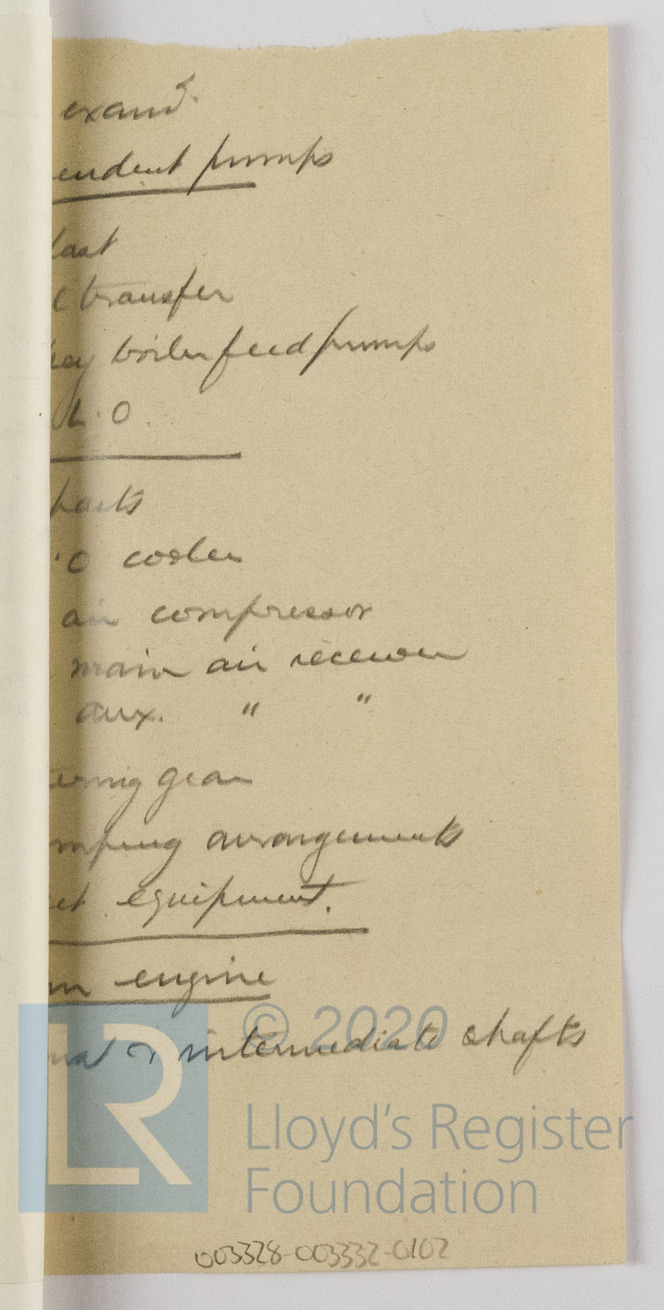 examd.
endent pumps
last
l transfer
key boiler feed pumps
L.O.
parts
.O cooler
air compressor
main air receiver
aux. " "
erning gear
mping arrangements
et equipment.
in engine
& intermediate shafts
© 2020
LR
Lloyd's Register
Foundation
003328-003332-0102